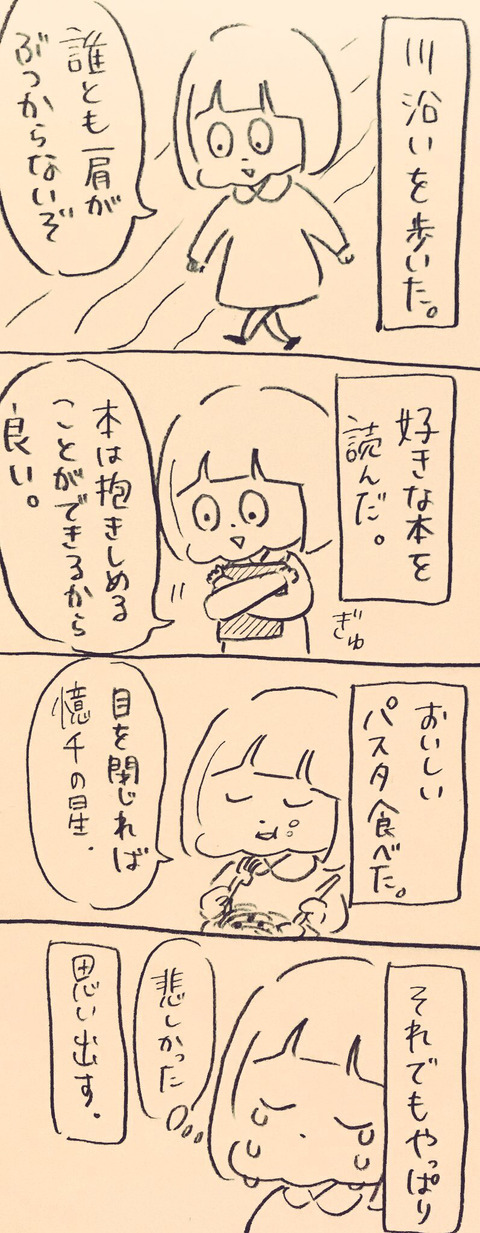 川沿いを歩いた。
誰とも肩が
ぶつからないぞ
好きな本を
読んだ。
本は抱きしめる
ことができるから
良い。
ぎゅ
おいしい
パスタ食べた。
目を閉じれば
憶千の星.
それでもやっぱり
悲しかった
思い出す.